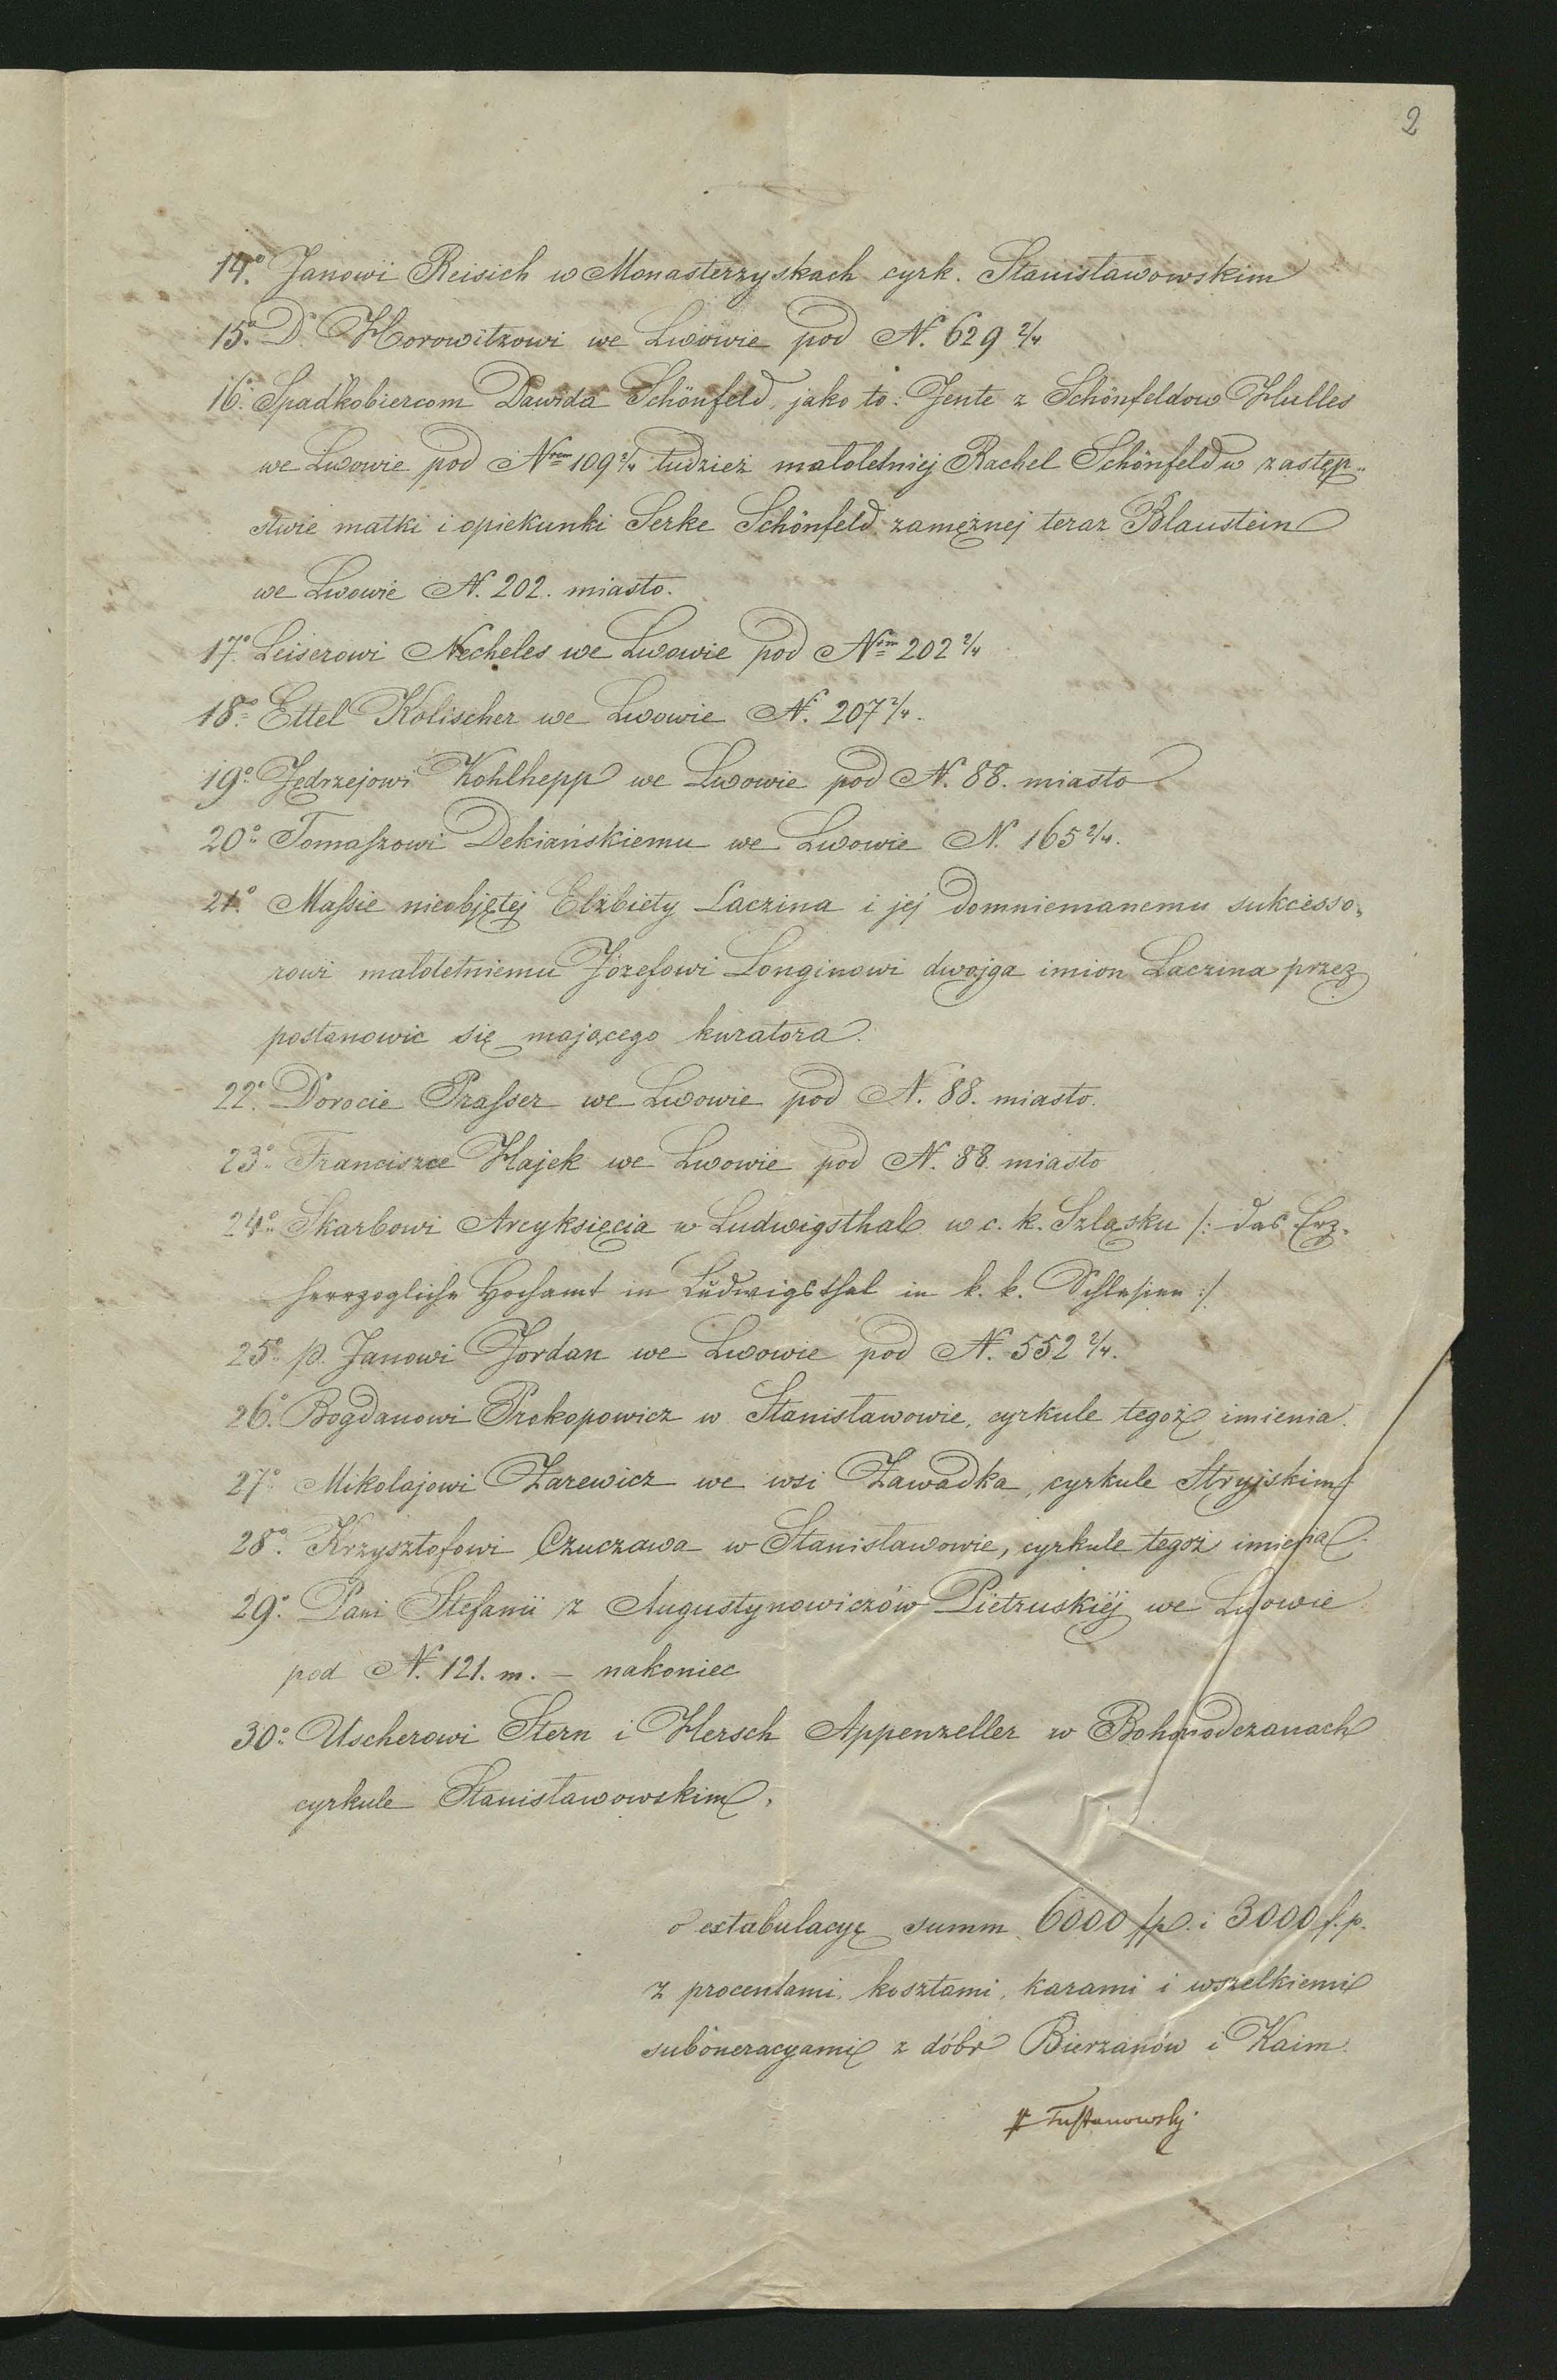 2
14.° Janowi Reisich w Monasterzyskach cyrk. Stanisławowskim
15.° Dr Horowitzowi we Lwowie pod N. 629 2/4
16.° Spadkobiercom Dawida Schönfeld, jako to: Jente z Schönfeldow Hulles
we Lwowie pod Nrem 109 2/4 tudzież małoletniej Rachel Schönfeld w zastęp-
stwie matki i opiekunki Serke Schönfeld zamężnej teraz Blaustein
we Lwowie N. 202. miasto.
17.° Leiserowi Necheles we Lwowie pod Nrm 202 2/4
18.° Ettel Kolischer we Lwowie N. 207 2/4.
19.° Jędrzejowi Kohlhepp we Lwowie pod N. 88. miasto
20.° Tomaszowi Dekiańskiemu we Lwowie N. 165 2/4.
21.° Massie nieobjętej Elżbiety Laczina i jej domniemanemu sukcesso-
rowi małoletniemu Józefowi Longinowi dwojga imion Laczina przez
postanowić się mającego kuratora.
22.° Dorocie Prasser we Lwowie pod N. 88. miasto.
23.° Franciszce Hajek we Lwowie pod N. 88 miasto
24.° Skarbowi Arcyksięcia w Ludwigsthal w c. k. Szląsku /: das Erz-
herzogliche Hochamt in Ludwigsthal in k. k. Schlesien :/
25.° p. Janowi Jordan we Lwowie pod N. 552 2/4.
26.° Bogdanowi Prokopowicz w Stanisławowie, cyrkule tegoż imienia.
27.° Mikołajowi Zarewicz we wsi Zawadka, cyrkule Stryjskim
28.° Krzysztofowi Czuczawa w Stanisławowie, cyrkule tegoż imienia.
29.° Pani Stefanii z Augustynowiczów Pietruskiéj we Lwowie
pod N. 121. m. – nakoniec
30.° Uscherowi Stern i Hersch Appenzeller w Bohorodczanach
cyrkule Stanisławowskim,
o extabulacyę summ 6000 fp. i 3000 f.p.
z procentami, kosztami, karami i wszelkiemi
suboneracyami z dóbr Bierzanów i Kaim.
Tustanowsky